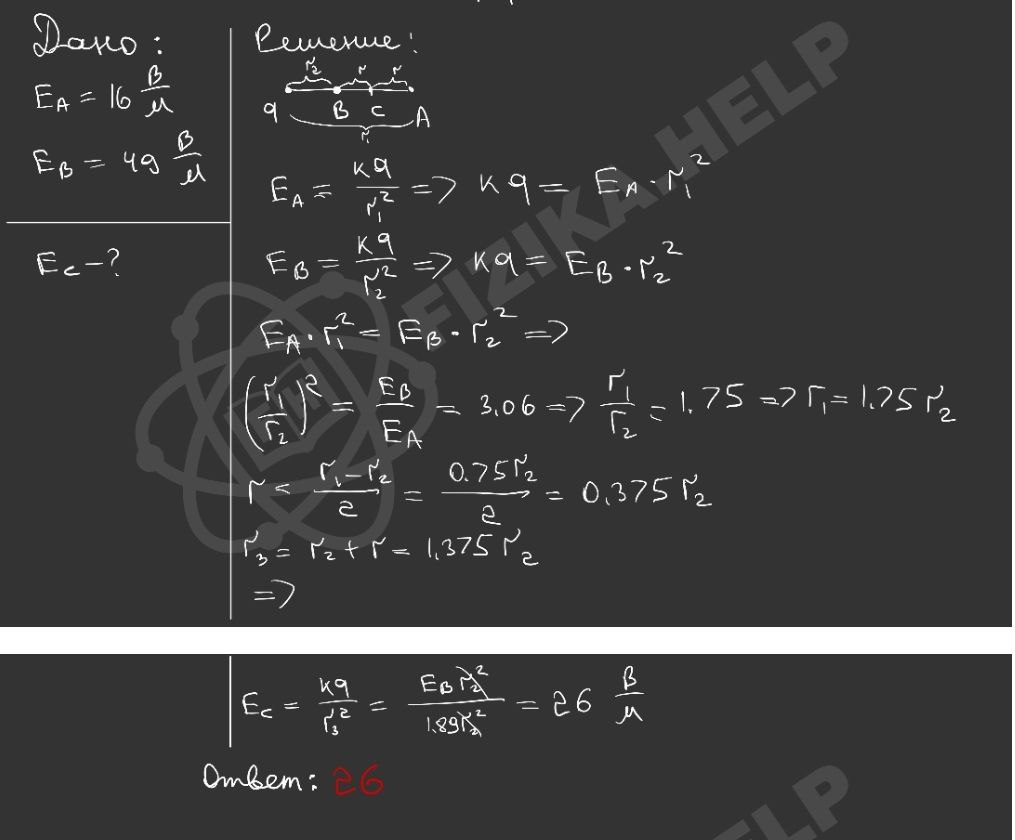 Дано:
E_A = 16 В/м
E_B = 49 В/м
E_C - ?
Решение:
r₂ r r
q B C A
r₁
E_A = kq/r₁² => kq = E_A · r₁²
E_B = kq/r₂² => kq = E_B · r₂²
E_A · r₁² = E_B · r₂² =>
(r₁/r₂)² = E_B/E_A = 3,06 => r₁/r₂ = 1.75 => r₁ = 1,75 r₂
r = (r₁ - r₂)/2 = 0.75r₂/2 = 0,375 r₂
r₃ = r₂ + r = 1,375 r₂
=>
E_C = kq/r₃² = E_B r₂²/1,89r₂² = 26 В/м
Ответ: 26
FIZIKA.HELP